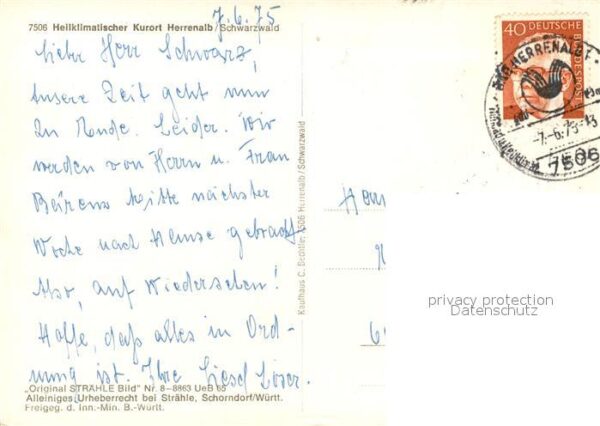 7.6.75
7506 Heilklimatischer Kurort Herrenalb/Schwarzwald
Lieber Herr Schwarz,
unsere Zeit geht nun
zu Ende. Leider. Wir
werden von Herrn u. Frau
Mitte nächster
Woche nach Hause gebracht
Also, auf Wiedersehen!
Hoffe, daß alles in Ord-
nung ist. Ihre Liesel
„Original STRÄHLE Bild" Nr. 8-8863 UeB 65
Alleiniges Urheberrecht bei Strähle, Schorndorf/Württ.
Freigeg. d. Inn.-Min. B.-Württ.
Kaufhaus C. Bechtle, 7506 Herrenalb/Schwarzwald
40 DEUTSCHE
BUNDESPOST
HERRENALB 1
-7.-6.75-13
7506
privacy protection
Datenschutz